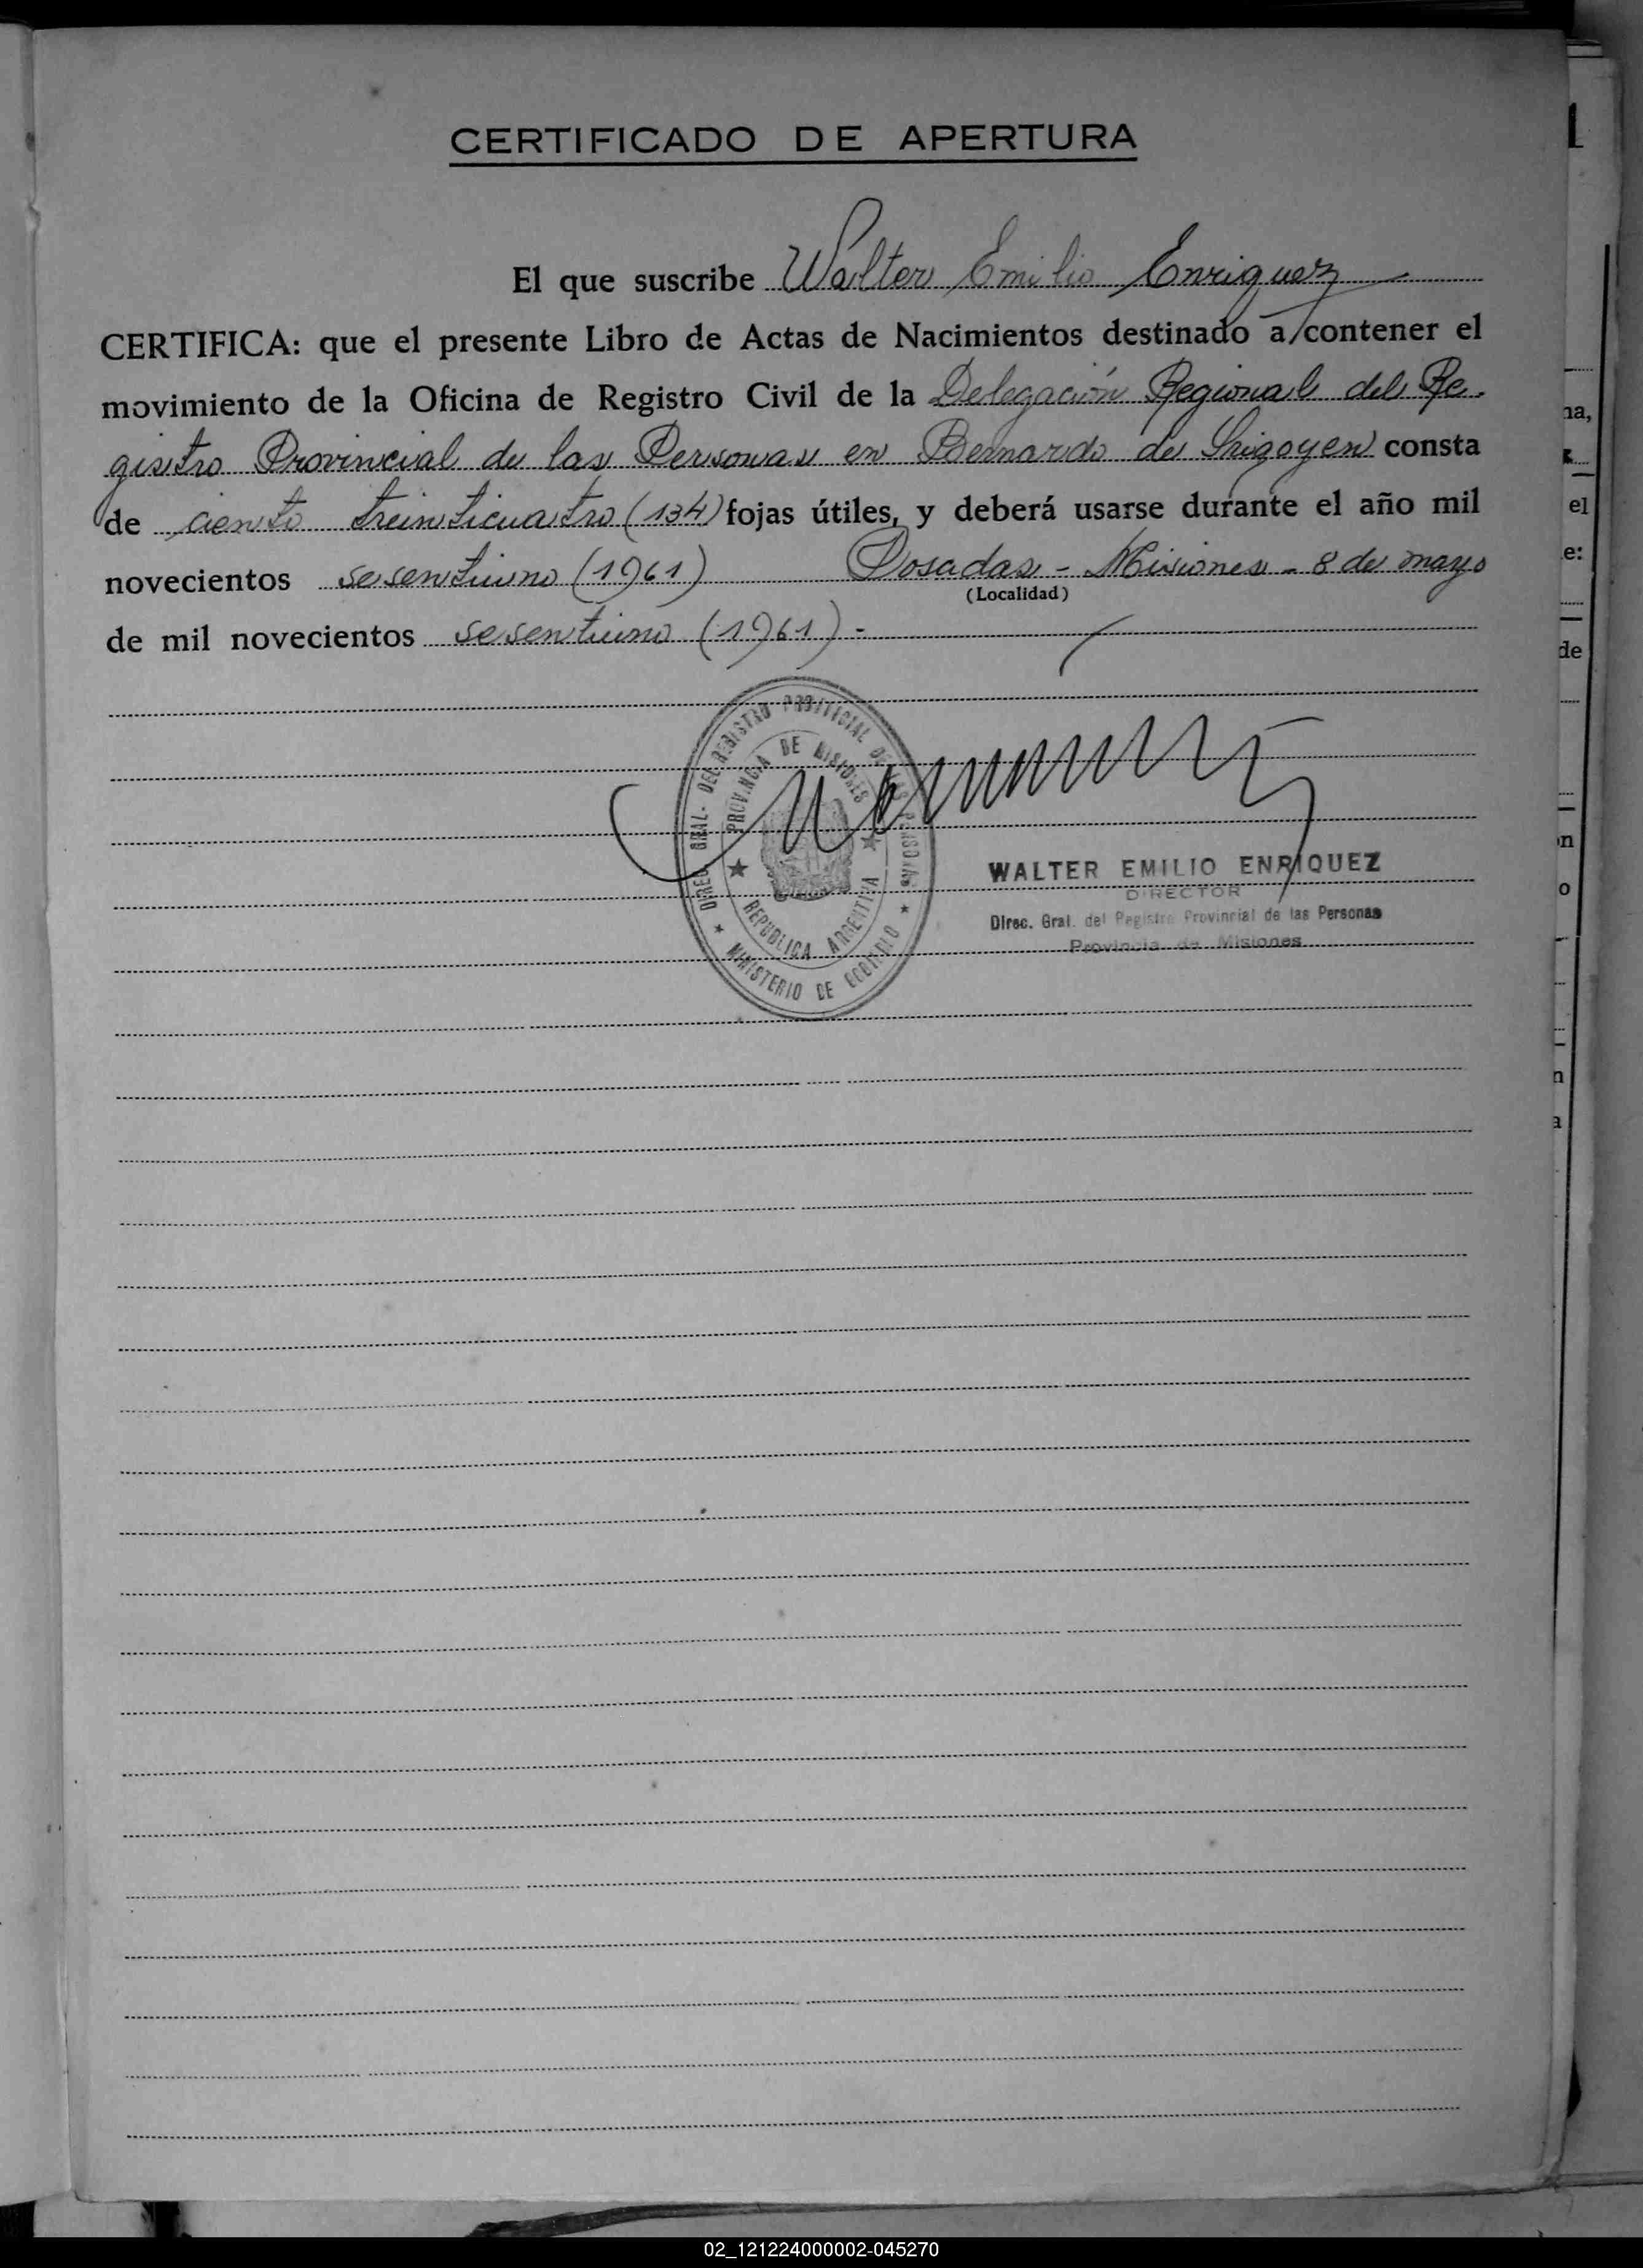 CERTIFICADO DE APERTURA
El que suscribe Walter Emilio Enriquez
CERTIFICA: que el presente Libro de Actas de Nacimientos destinado a contener el
movimiento de la Oficina de Registro Civil de la Delegación Regional del Re-
gistro Provincial de las Personas en Bernardo de Irigoyen consta
de ciento treinticuatro (134) fojas útiles, y deberá usarse durante el año mil
novecientos sesentiuno (1961) Posadas - Misiones - 8 de mayo
(Localidad)
de mil novecientos sesentiuno (1961) -
DIREC. GRAL. DEL REGISTRO PROVINCIAL DE LAS PERSONAS
PROVINCIA DE MISIONES
REPUBLICA ARGENTINA
MINISTERIO DE GOBIERNO
WALTER EMILIO ENRIQUEZ
DIRECTOR
Direc. Gral. del Registro Provincial de las Personas
Provincia de Misiones
02_121224000002-045270